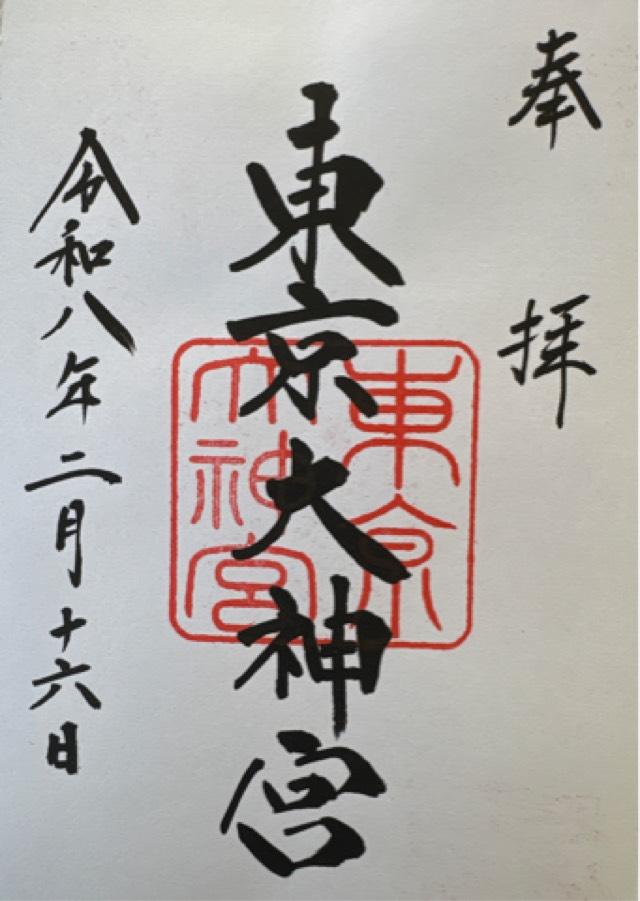 奉拝
東京大神宮
東京大神宮
令和八年二月十六日